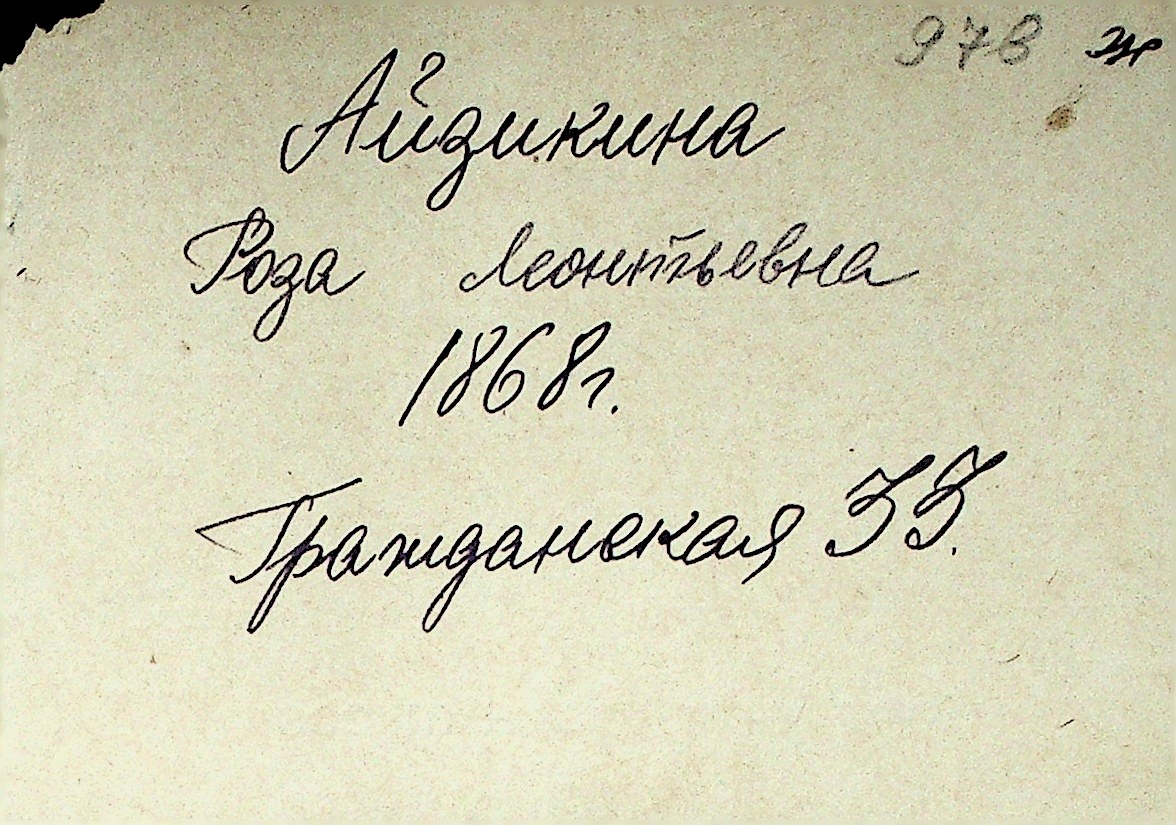 978 ж
Айзикина
Роза Леонтьевна
1868г.
Гражданская 33.